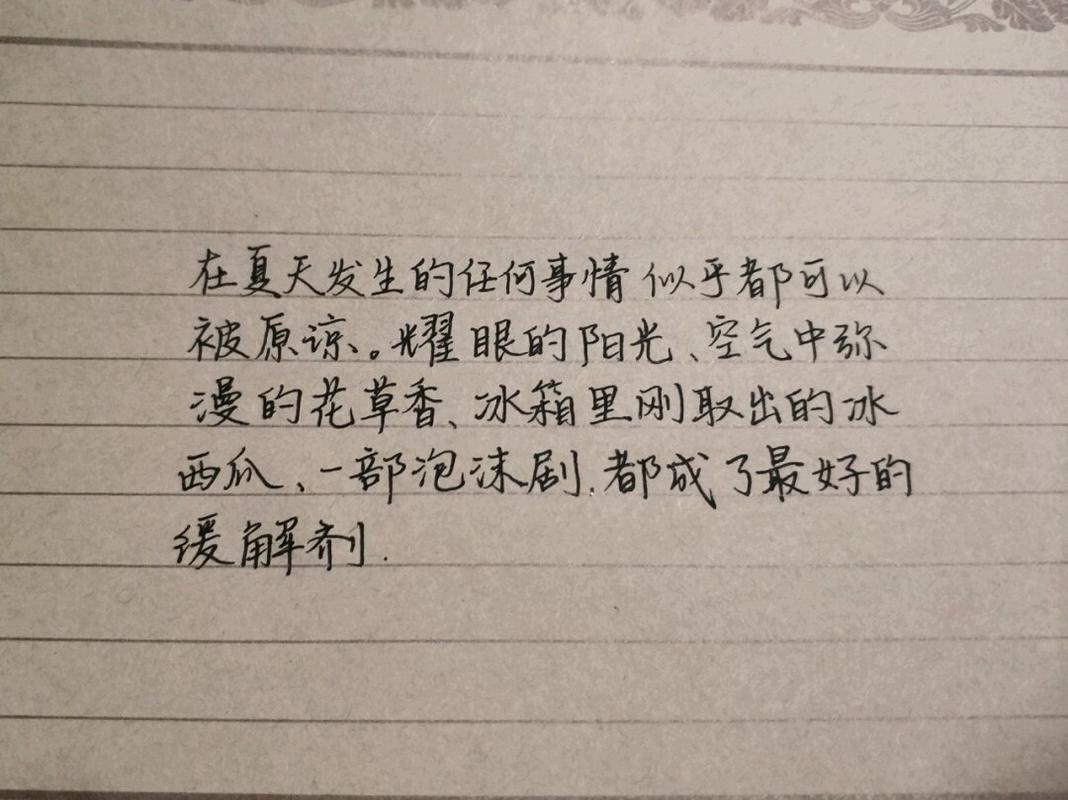 在夏天发生的任何事情似乎都可以
被原谅。耀眼的阳光、空气中弥
漫的花草香、冰箱里刚取出的冰
西瓜、一部泡沫剧.都成了最好的
缓解剂.